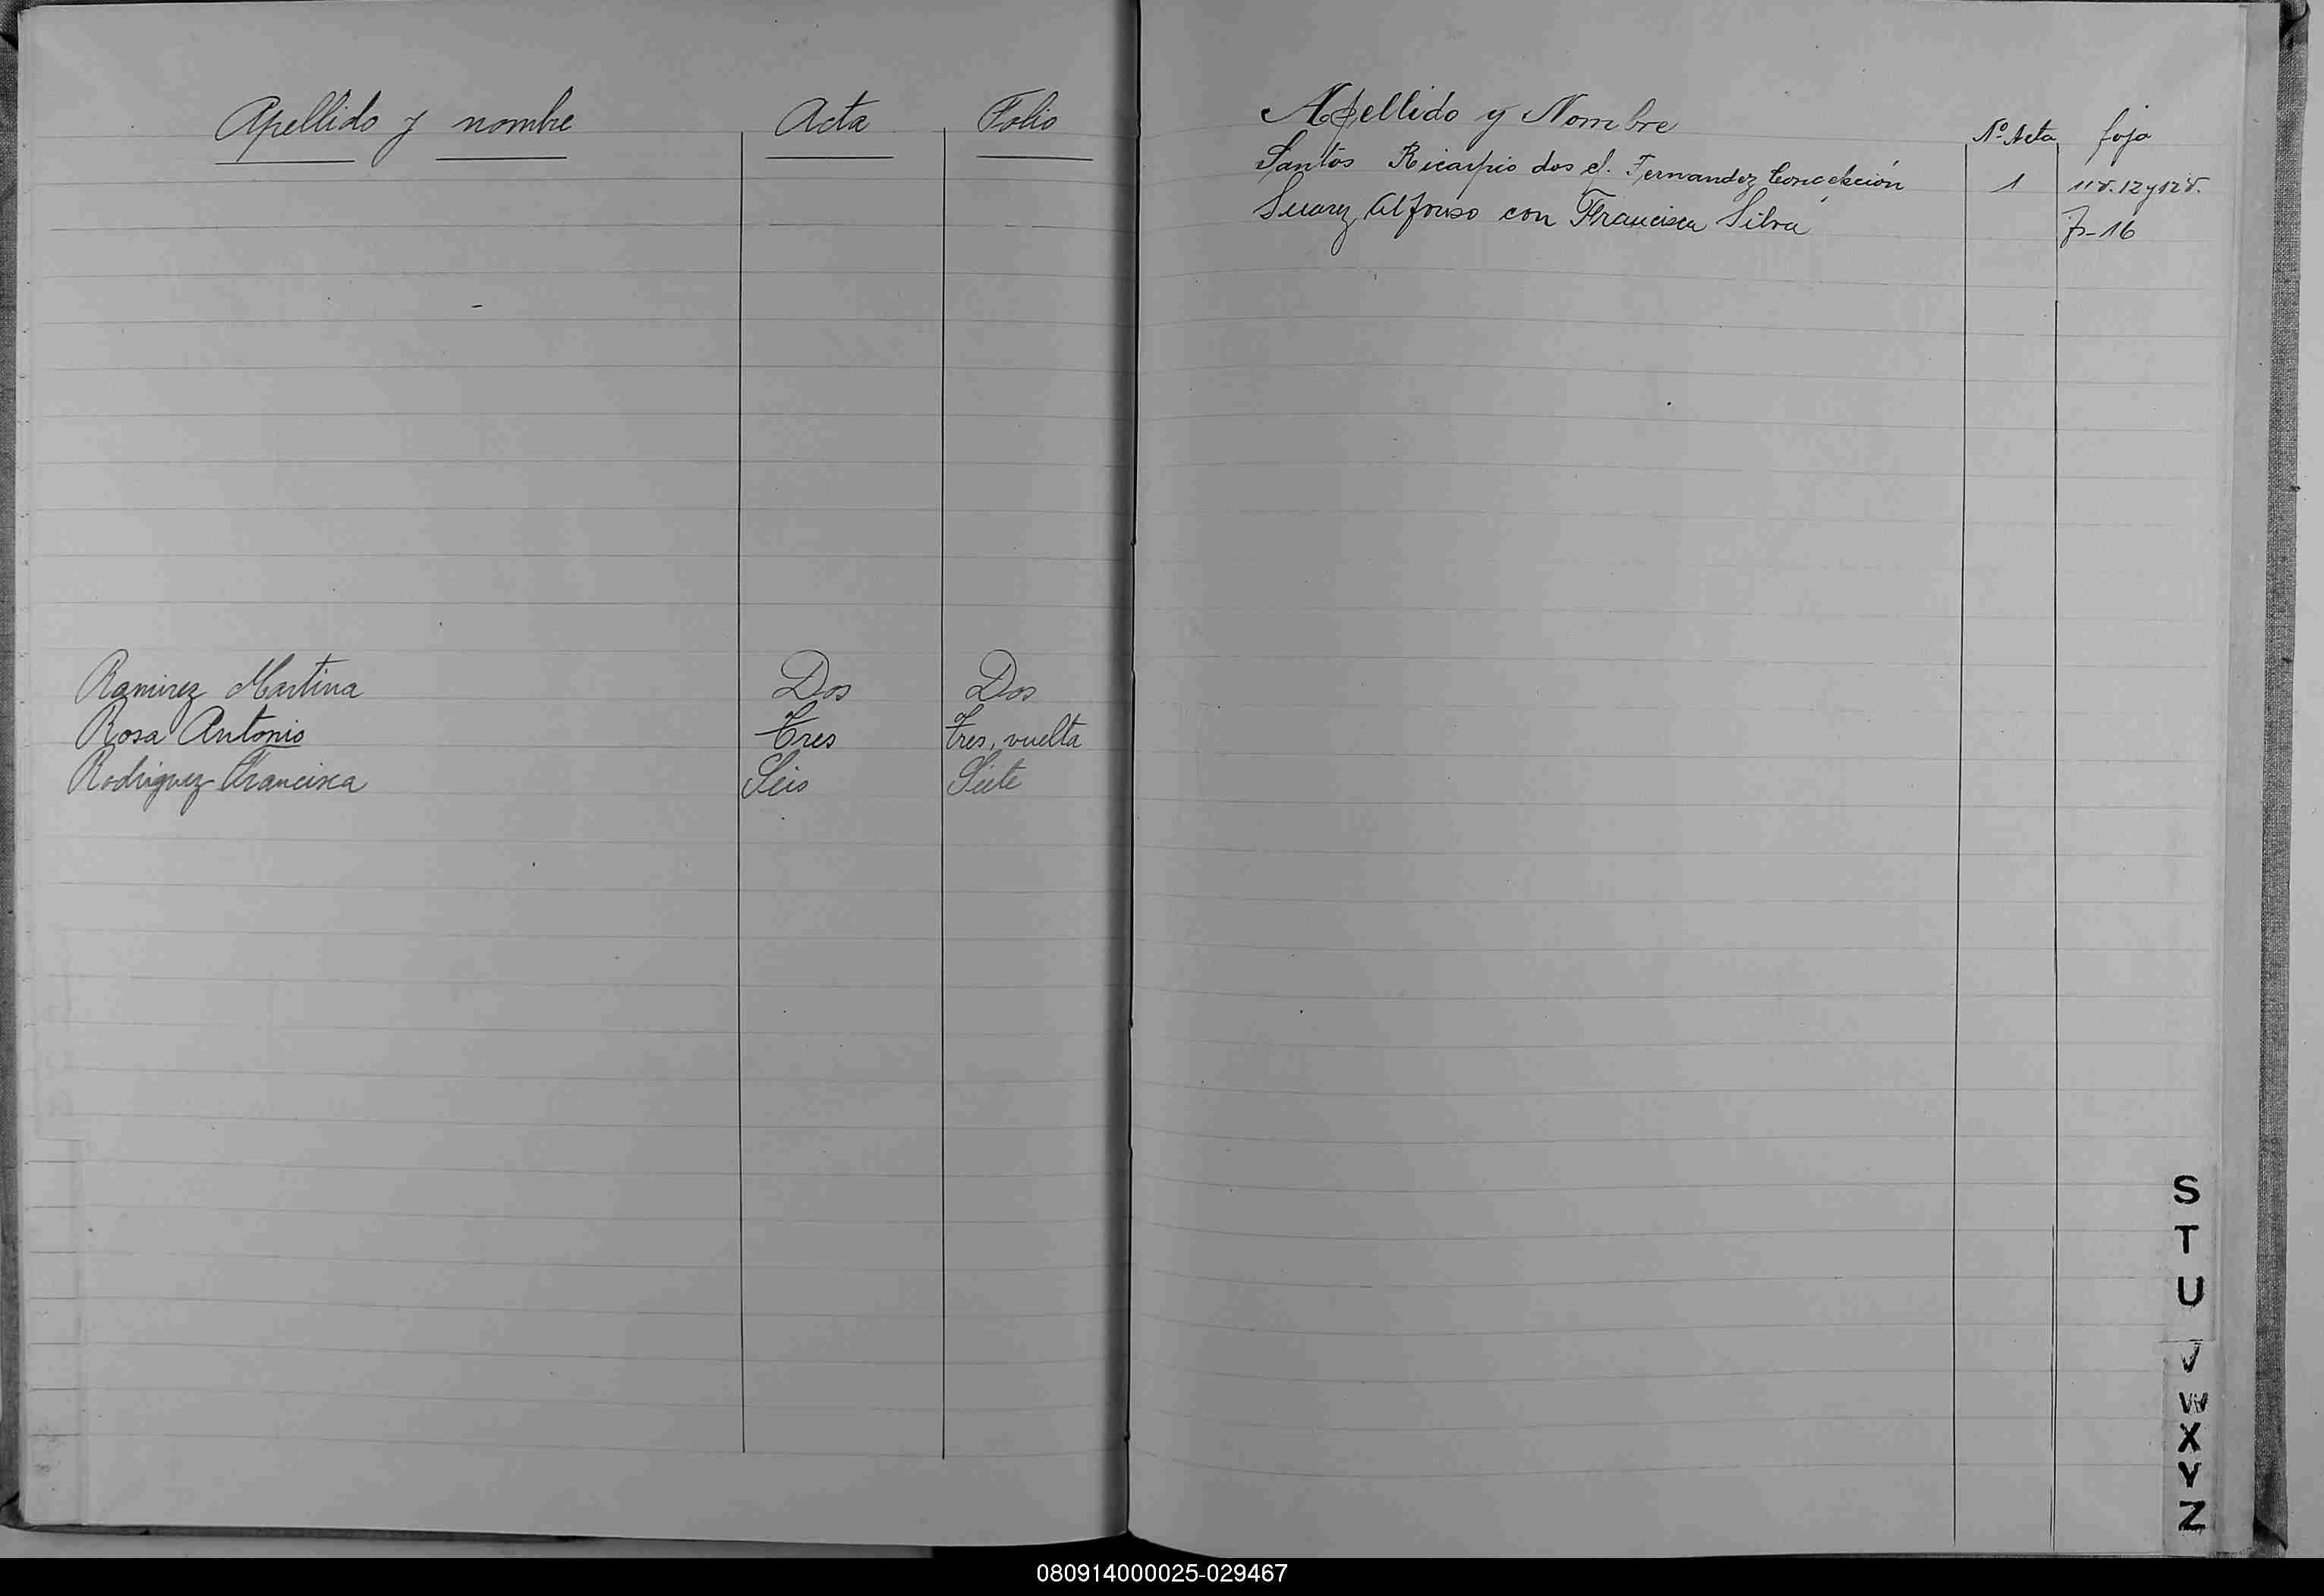 Apellido y nombre Acta Folio
Ramirez Martina Dos Dos
Rosa Antonio Tres Tres, vuelta
Rodriguez Francisca Seis Siete
Apellido y Nombre Nº Acta foja
Santos Ricarpio dos c/. Fernandez Concepción 1 11v. 12 y 12v.
Suarez Alfonso con Francisca Silva 16
S
T
U
V
W
X
Y
Z
080914000025-029467